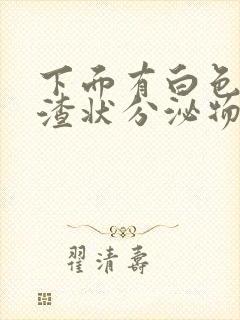 下面有白色
渣状分泌物
翟清寿